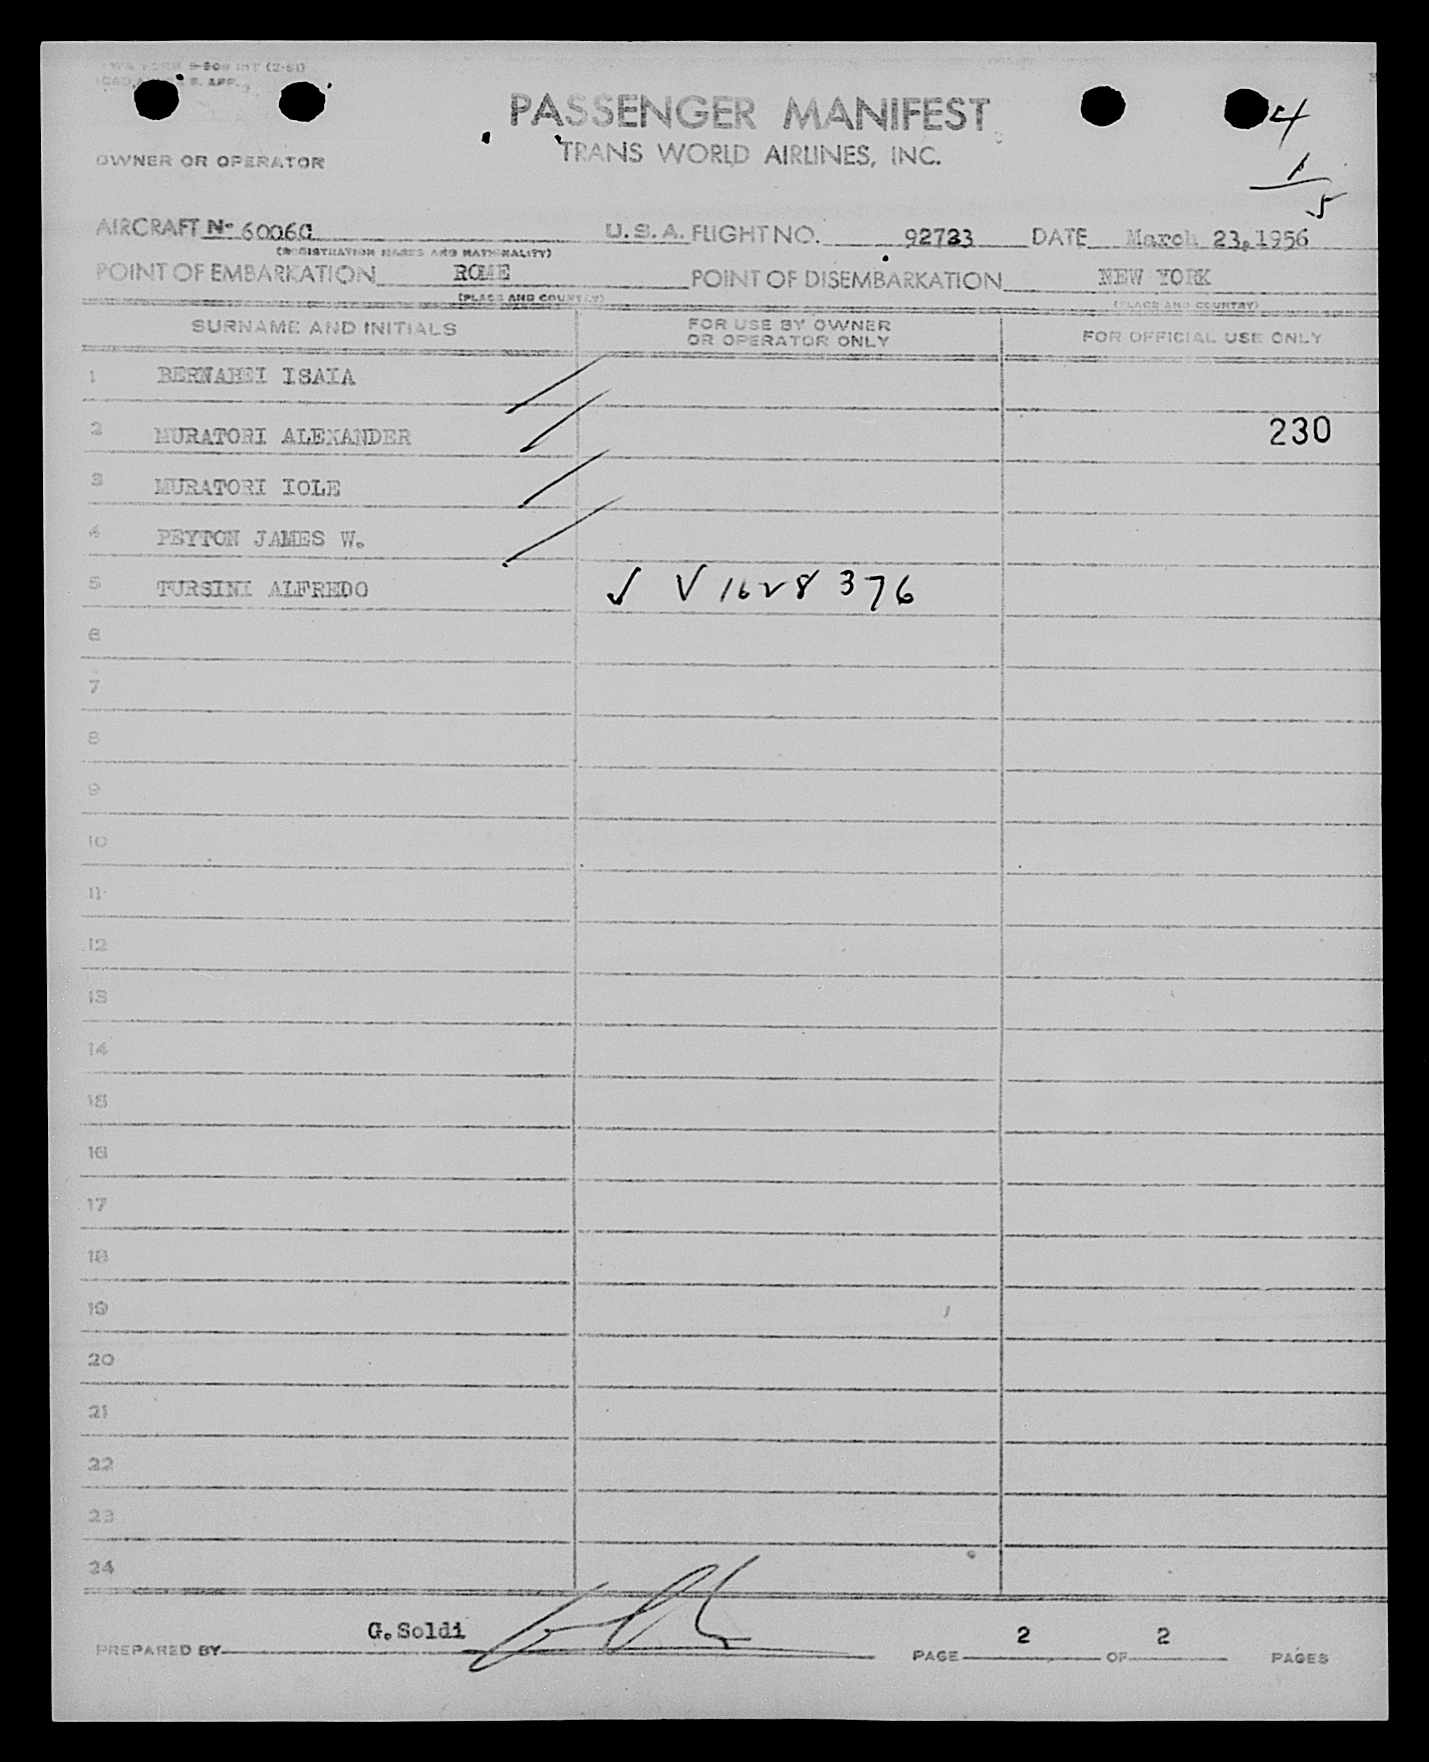 PASSENGER MANIFEST
TRANS WORLD AIRLINES, INC.
4
1
5
OWNER OR OPERATOR
AIRCRAFT N- 6006C U.S.A. FLIGHT NO. 92723 DATE March 23,1956
(REGISTRATION MARKS AND NATIONALITY)
POINT OF EMBARKATION ROME POINT OF DISEMBARKATION NEW YORK
(PLACE AND COUNTRY) (PLACE AND COUNTRY)
SURNAME AND INITIALS FOR USE BY OWNER OR OPERATOR ONLY FOR OFFICIAL USE ONLY
1 BERNABEI ISAIA
2 MURATORI ALEXANDER 230
3 MURATORI IOLE
4 PEYTON JAMES W.
5 TURSINI ALFREDO √ V 1628 376
6
7
8
9
10
11
12
13
14
15
16
17
18
19
20
21
22
23
24
PREPARED BY G.Soldi PAGE 2 OF 2 PAGES